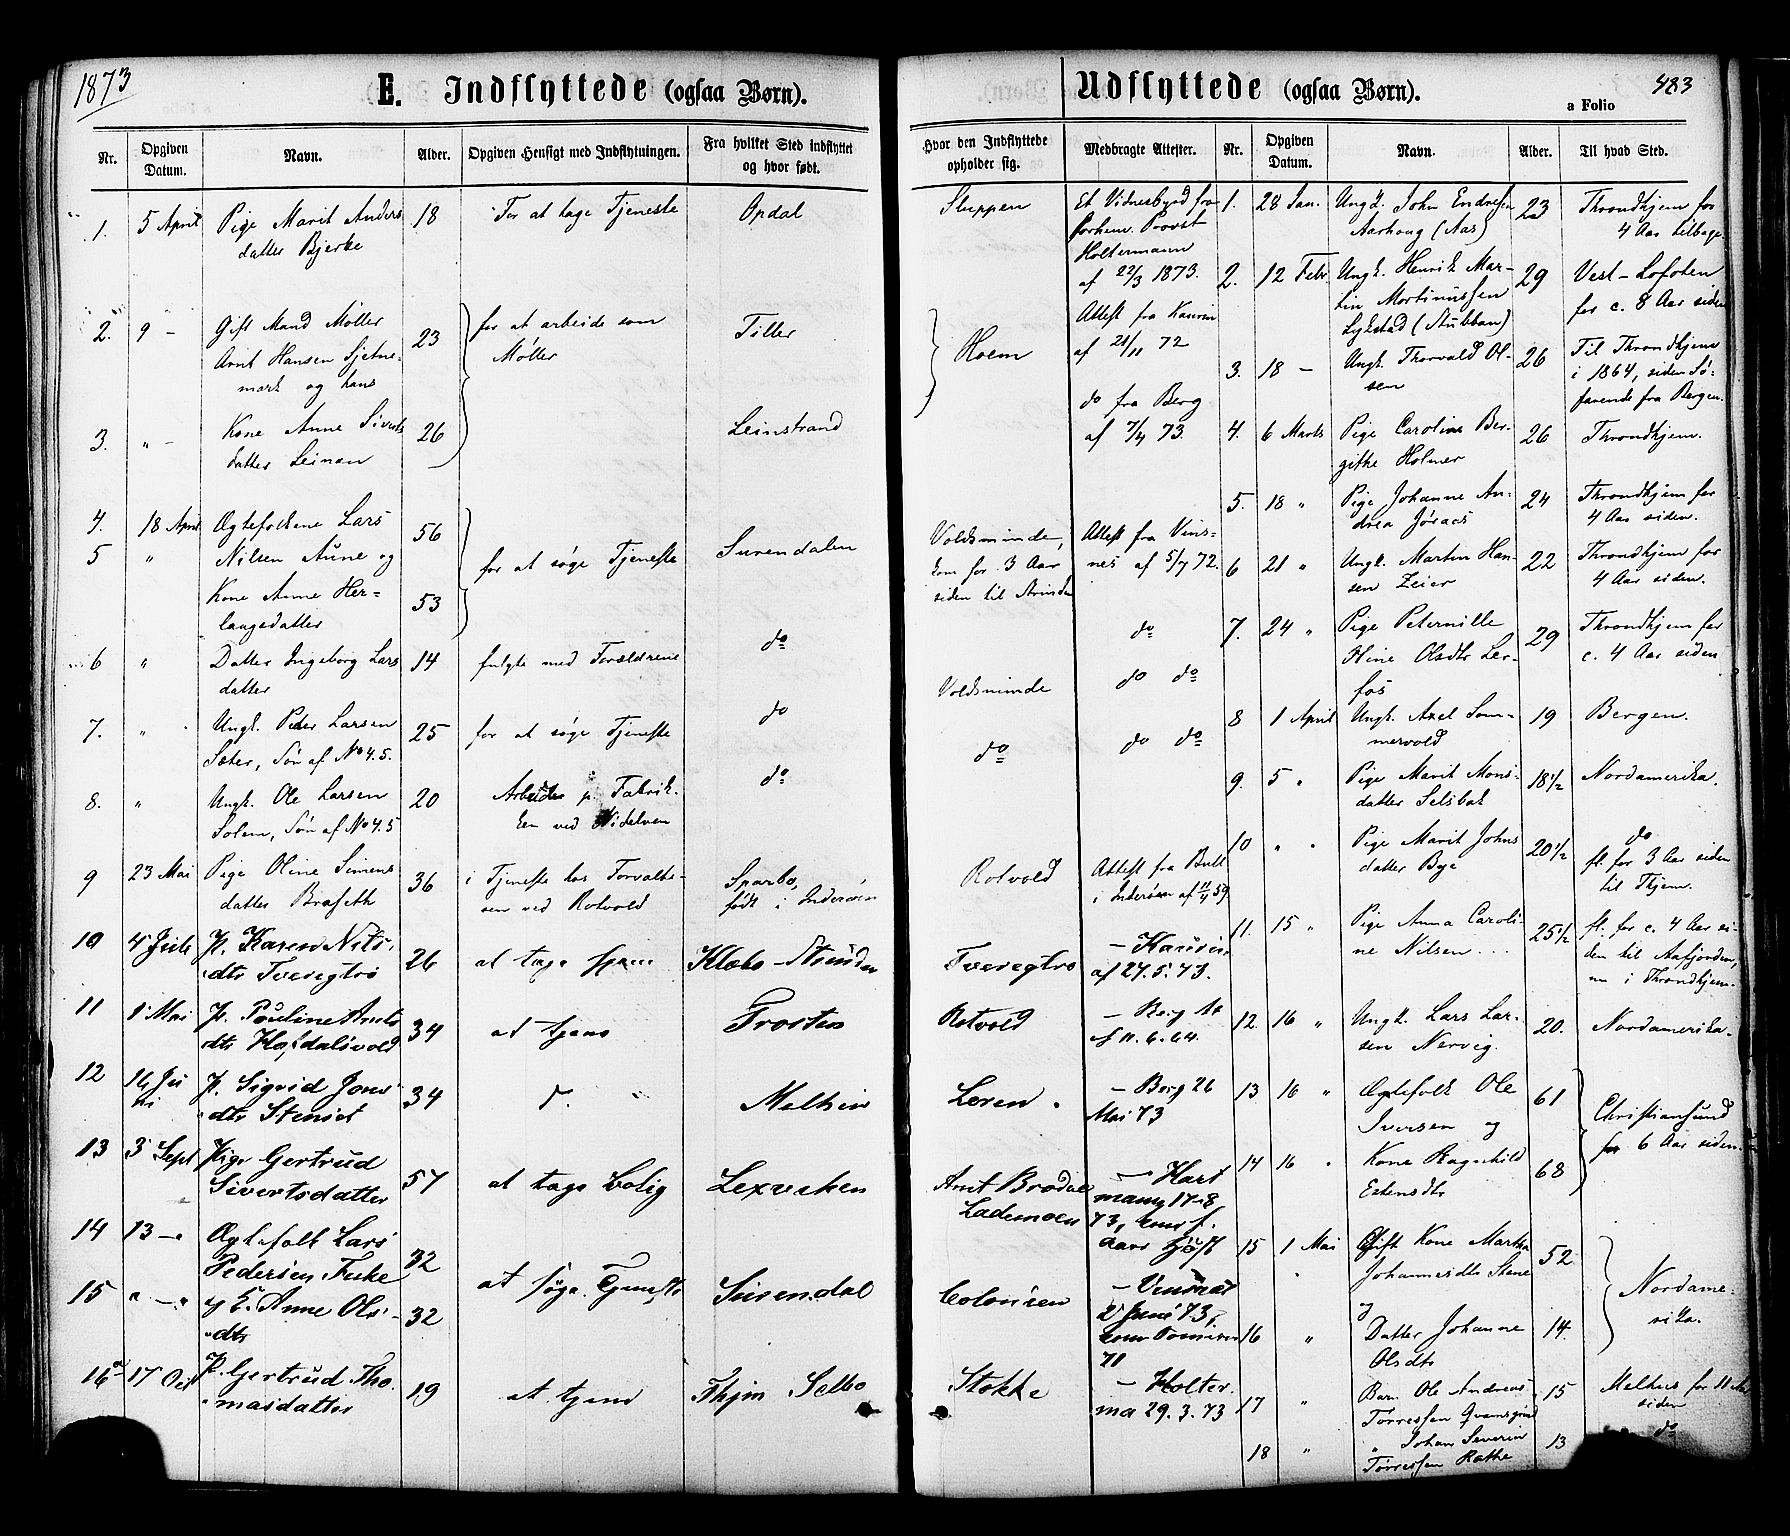 1873
E. Indflyttede (ogsaa Børn).
Nr.
Opgiven Datum.
Navn.
Alder.
Opgiven Hensigt med Indflytningen.
Fra hvilket Sted indflyttet og hvor født.
1. 5 April Pige Marit Anders 18 For at tage Tjeneste Opdal
datter Bjerke
2. 9 – Gift Mand Møller 23 for at arbeide som Tiller
Arnt Hansen Sjetne- Møller
mark og hans
3. " – Kone Anne Siverts 26 Leinstrand
datter Leinan
4. 18 April Ægtefolkene Lars 56
5 " Nilsen Aune og for at søge Tjeneste Surendalen
Kone Anne Her- 53
laugsdatter
6 " Datter Ingeborg Lars 14 fulgte med Forældrene do
datter
7. " Ungk. Peder Larsen 25 for at søge Tjeneste do
Sæter, Søn af No 4.5.
8. " Ungk. Ole Larsen 20 Arbeide p. Fabrik- do
Solem, Søn af No 4.5 ken ved Nidelven
9 23 Mai Pige Oline Simens 36 i Tjeneste hos Forvalte- Sparbo,
datter Braseth ren ved Rotvold født i Inderøen
10 4 Juli P. Karen Nils- 26 at tage Klæbo – Strinden
dtr Tveregtrø
11 8 Mai P. Pauline Arnts 34 at tjene Frosten
dtr Hofdalsvold
12 14 Ju P. Sigrid Jons 34 d. " Melhus
ni dtr Stenset
13 3 Sept Pige Gertrud 57 at tage bolig Lexviken
Sivertsdatter
14 13 – Ægtefolk Lars 32
Pedersen Fiske at søge Tjeneste Surendal
15 " – " g E. Anne Ols- 32
dtr
16 17 Oct P. Gertrud Tho- 19 at tjene Thjm Selbo
masdatter
Udflyttede (ogsaa Børn).
a Folio
483
Hvor den Indflyttede opholder sig.
Medbragte Attester.
Sluppen Et Vidnesbyrd fra
forhenv. Provst
Holtermann
af 22/3 1873.
Hoem Attest fra
af 21/11 72
do fra Berg
af 7/4 73.
Voldsminde, Attest fra Vins-
kom for 3 Aar nes af 5/7 72.
siden til Strinden
do
Voldsminde do do
do do do
Rotvold Attest fra
i Inderøen af 11/4 59
Tveregtrø –
af 27.5.73.
Rotvold – Berg
af 11.6.64.
Leren – Berg 26
Mai 73
Arnt Brødal – Hart
Lademoen mann 17–8
73,
Colonien –
2 Juni 73,
71
Stokke – Holter.
ma 29.3.73
Nr.
Opgiven Datum.
Navn.
Alder.
Til hvad Sted.
1. 28 Jan. Ungk. John Endresen 23 Throndhjem for
Aarhoug (Aas) 4 Aar tilbage
2. 12 Febr Ungk. Henrik Mar- 29 Vest-Lofoten
tin Mortinussen for c. 8 Aar siden
Lykstad (Stubban)
3. 18 – Ungk. Thorvald Ol- 26 Til Throndhjem
sen i 1864, siden Sø-
farende fra Bergen.
4. 6 Marts Pige Caroline Ber- 26 Throndhjem.
githe Holmer
5. 18 " Pige Johanne An- 24 Throndhjem for
drea 4 Aar siden.
6 21 " Ungk. Martin Han- 22 Throndhjem for
sen Zeier 4 Aar siden.
7. 24 " Pige Peternille 29 Throndhjem for
Oline Olsdtr Ler- c. 4 Aar siden
fos
8 1 April Ungk. Axel Som- 19 Bergen.
mervold
9. 5 " Pige Marit Mons- 18 1/2 Nordamerika.
datter Selsbak
10 " " Pige Marit Johns 20 1/2 do
datter Bye fl. for 3 Aar siden
til Thjem.
11. 15 " Pige Anna Caroli- 25 1/2 fl. for c. 4 Aar si-
ne Nilsen den til Aafjorden,
nu i Throndhjem.
12. 16 " Ungk. Lars Lar- 20. Nordamerika.
sen Nervig.
13 16 " Ægtefolk Ole 61 Christiansund
Iversen og for 6 Aar siden.
14 16 " Kone Ragnhild 68
Estensdtr
15 1 Mai Gift Kone Martha 52
Johannesdtr Stene Nordame-
16 " Datter Johanne 14. rika.
Olsdtr
17 " Barn Ole Andreas 15 Melhus for 11 Aar
Torressen siden
18 " " Johan Severin 13 do
Torressen Rathe